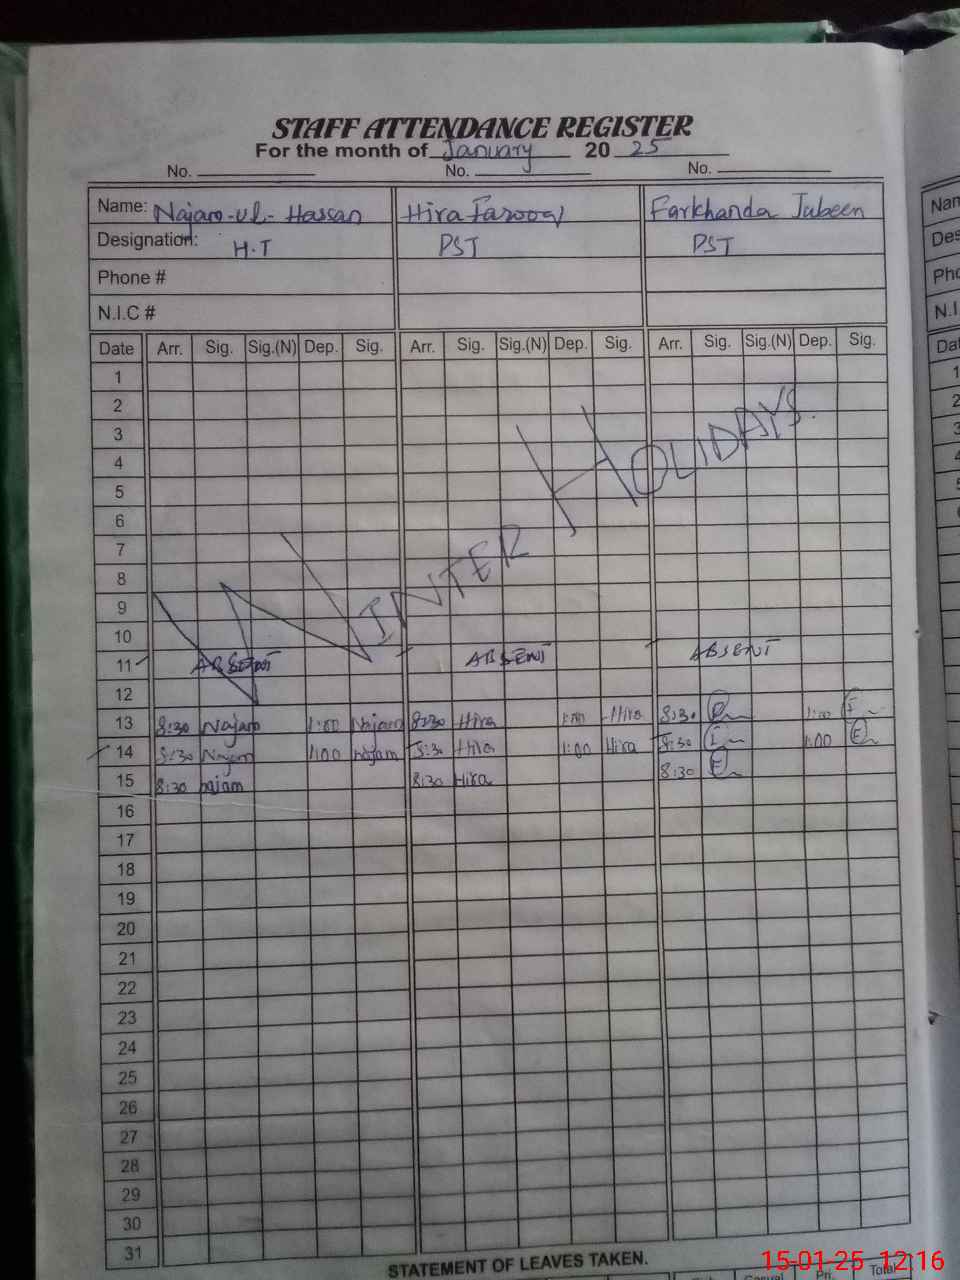 STAFF ATTENDANCE REGISTER
For the month of January 2025
No. No. No.
Name: Najam-ul-Hassan Hira Farooq Farkhanda Jabeen
Designation: H.T PST PST
Phone #
N.I.C #
Date Arr. Sig. Sig.(N) Dep. Sig. Arr. Sig. Sig.(N) Dep. Sig. Arr. Sig. Sig.(N) Dep. Sig.
1
2
3
4
5
6
7
8
9
10
WINTER HOLIDAYS.
11 ABSENT ABSENT ABSENT
12
13 8:30 Najam 1:00 Najam 8:30 Hira 1:00 Hira 8:30 1:00
14 8:30 Najam 1:00 najam 8:30 Hira 1:00 Hira 8:30 1:00
15 8:30 najam 8:30 Hira 8:30
16
17
18
19
20
21
22
23
24
25
26
27
28
29
30
31
STATEMENT OF LEAVES TAKEN.
Casual Pri. Total
15-01-25 12:16
Nam
Des
Pho
N.I.
Dat